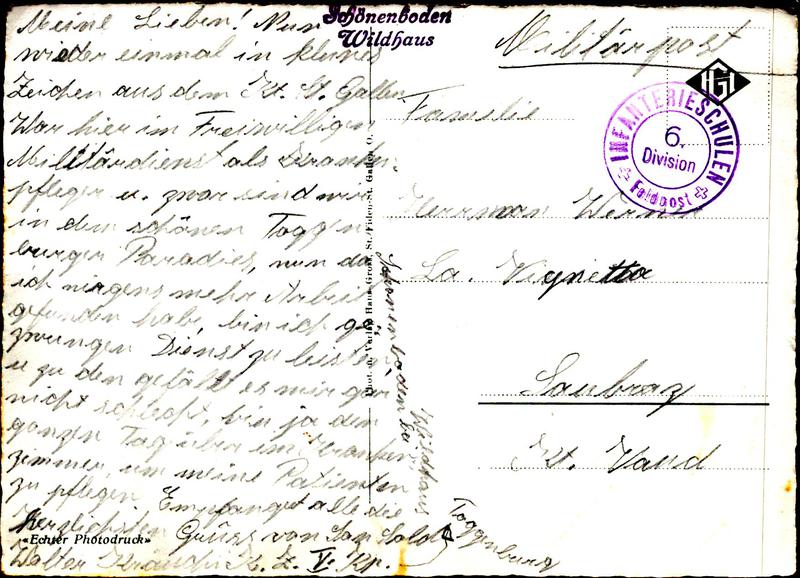 Meine Lieben! Nun
wieder einmal in kleines
Zeichen aus dem Kt. St. Gallen
War hier im Freiwilligen
Militärdienst als Kranken
pfleger u. zwar sind wir
in dem schönen Toggen
burger Paradies, nun da
ich nirgens mehr Arbeit
gefunden habe, bin ich ge
zwungen Dienst zu leisten
u zu dem gefällt es mir gar
nicht schlecht, bin ja den
ganzen Tag über im Kranken
zimmer, um meine Patienten
zu pflegen Empfanget alle die
herzlichsten Grüss von San. Sold.
Walter K. Z. V. Kp.
«Echter Photodruck»
Schönenboden
Wildhaus
Phot. u. Verlag Hans Gross, St. Fiden-St. Gallen O.
Schönenboden bei
Wildhaus
Toggenburg
Militärpost
HG
INFANTERIESCHULEN
6.
Division
Feldpost
Familie
Herrman Werner
La. Vignetta
Saubraz
Kt. Vaud